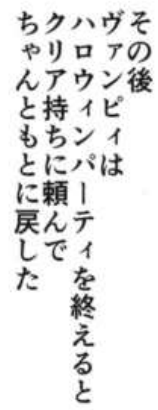 その後
ヴァンピィは
ハロウィンパーティを終えると
クリア持ちに頼んで
ちゃんともとに戻した